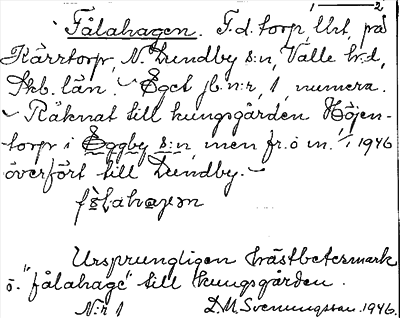 1 2
Fålahagen. F.d. torp, lht, på
Kärrtorp, N. Lundby s:n, Valle hd,
Skb. län. - Eget jb.n:r, 1, numera.
- Räknat till kungsgården Höjen-
torp i Eggby s:n, men fr.o m. 1/1 1946
överfört till Lundby. -
Ursprungligen hästbetesmark
o. "fålahage" till kungsgården.
N:r 1 D.M. Svenungsson 1946.